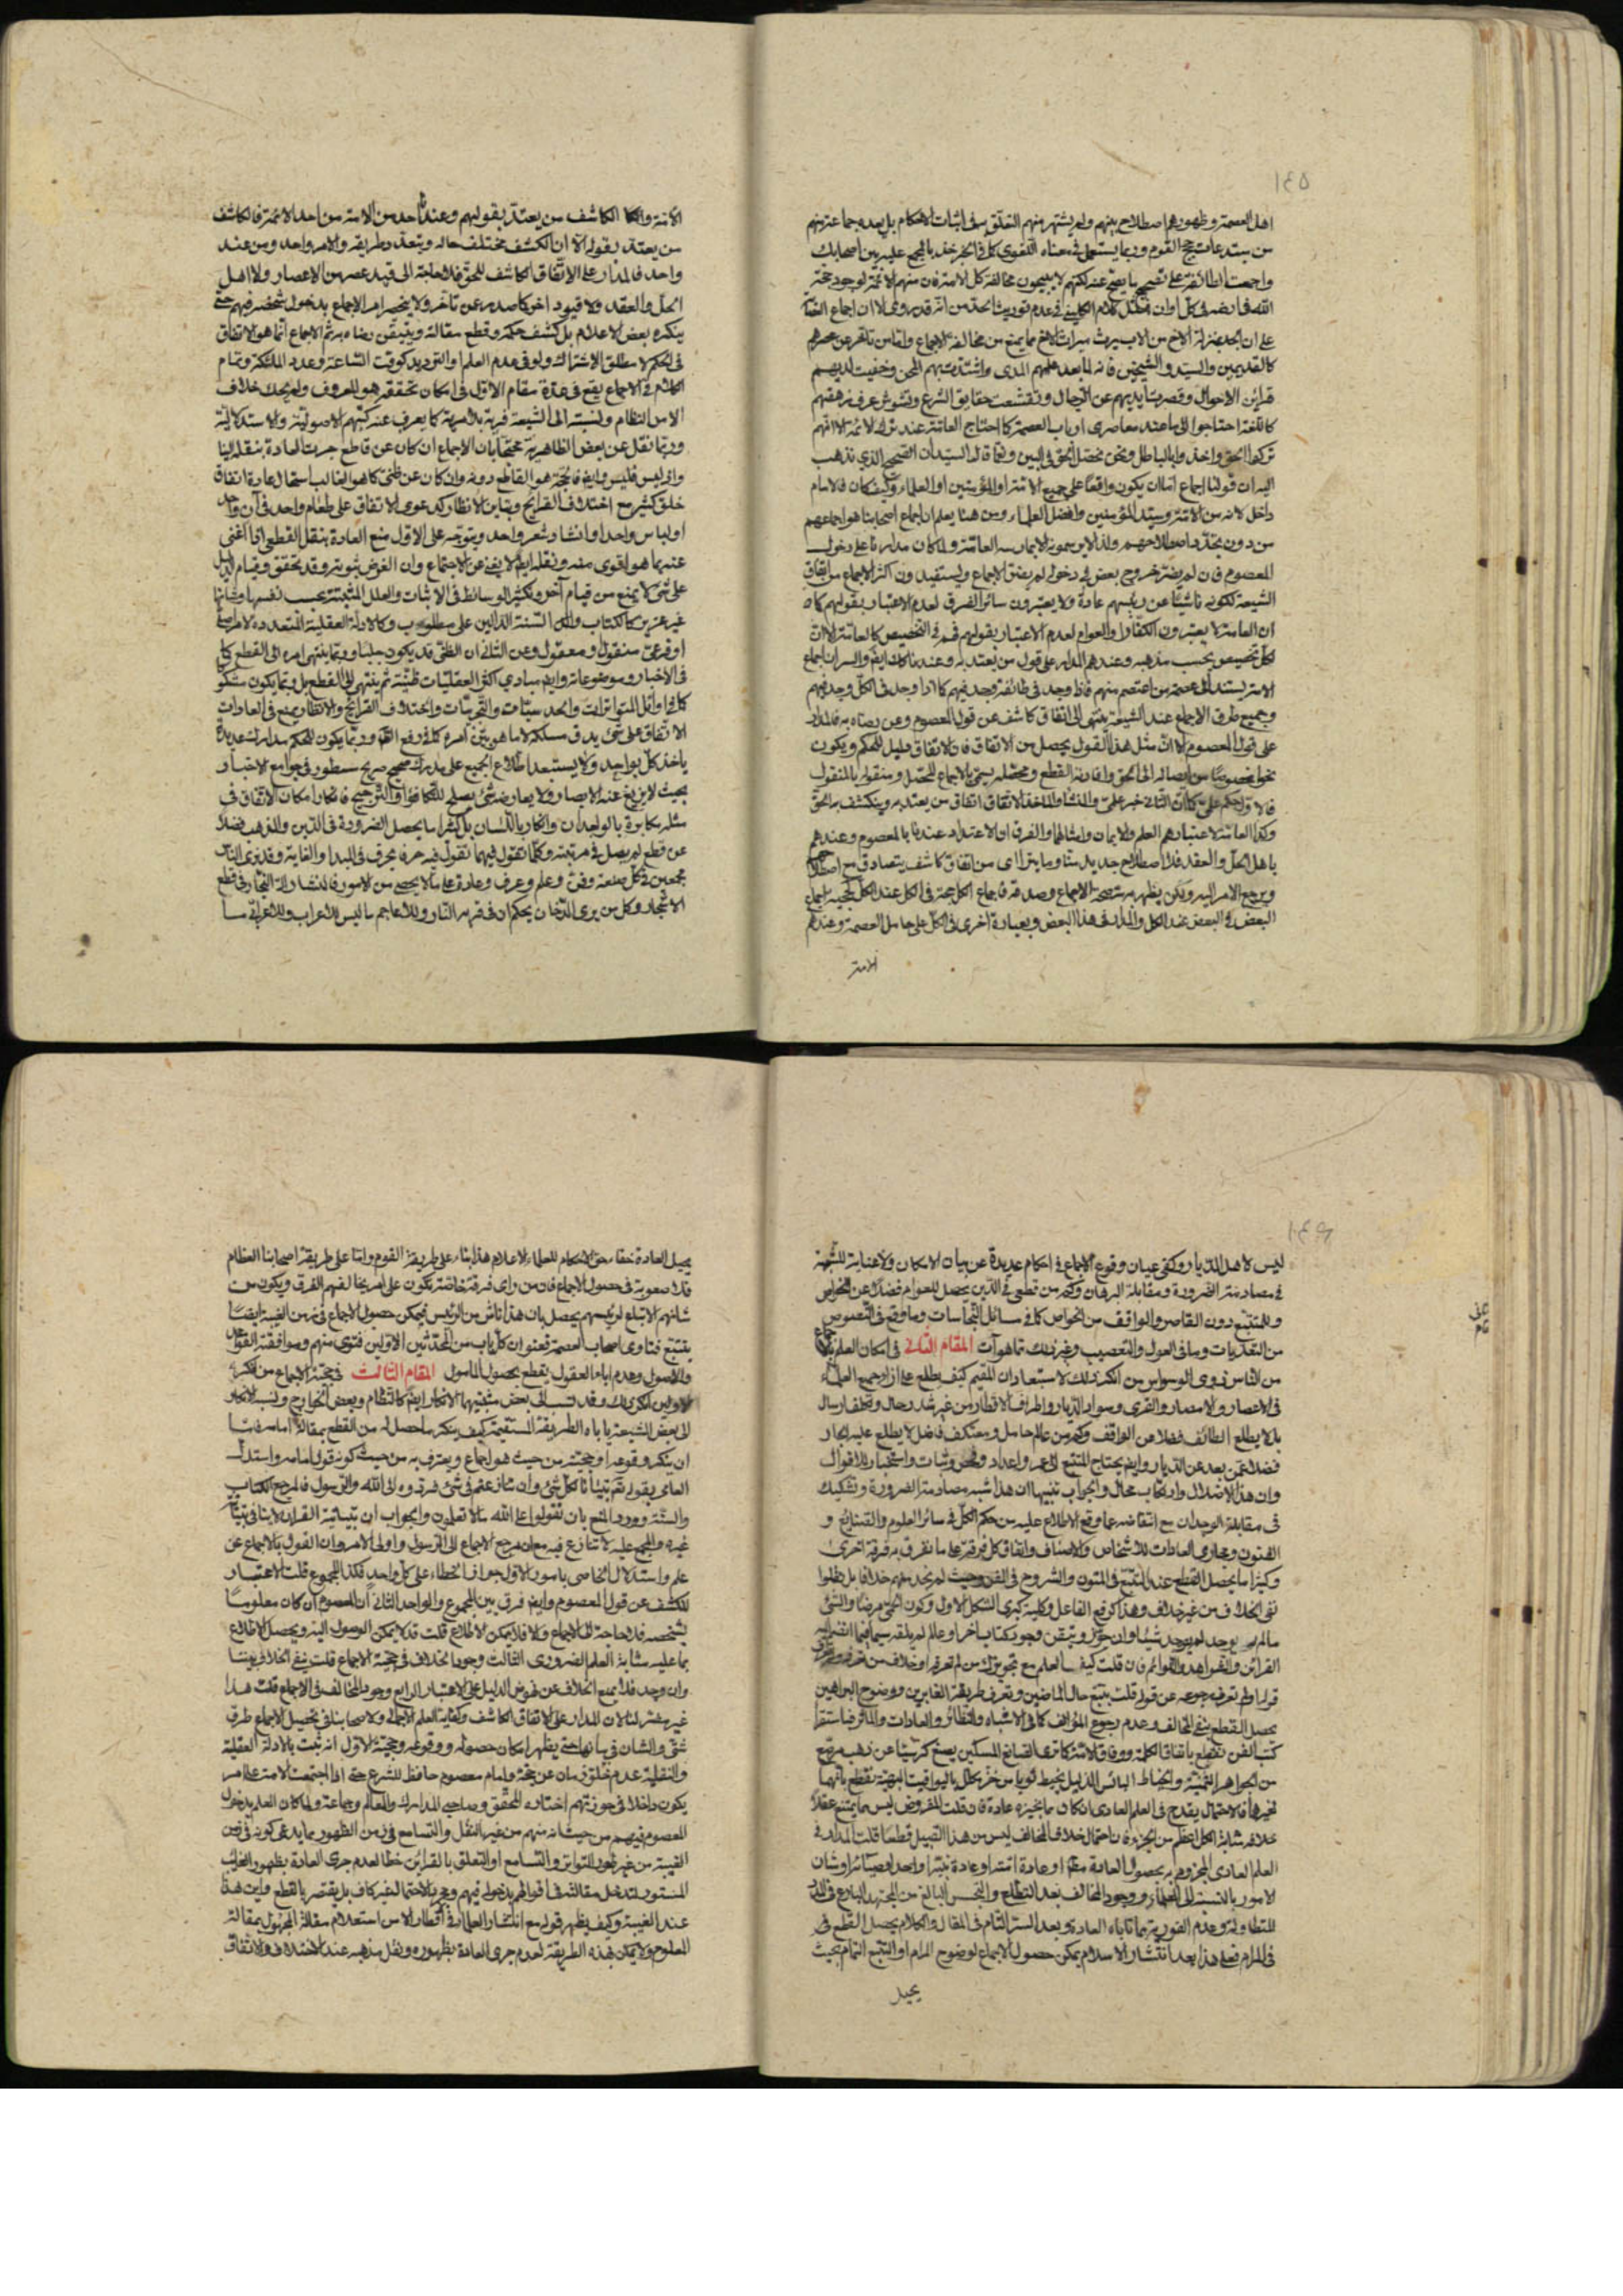 ١٤٥
اهل العصمة وظهورها اصطلاح بينهم ولم يشتهر منهم التعلق به في اثبات الاحكام بل يعده جماعة منهم
من مبتدعات القوم وربما يستعمل في معناه اللغوي كما في الخبر خذ بالمجمع عليه بين اصحابك
واجمعت الطائفة على تصحيح ما يصح عنه لكنهم لا يبيحون مخالفة كل الامة فان منهم الائمة لوجود حجة
الله في ارضه في كل اوان فنقل كلام الكليني في عدم توريث الجد من انه قد روى الا ان اجماع العصابة
على ان الجد بمنزلة الاخ من الاب يرث ميراث الاخ مما يمنع من مخالفة الاجماع واما من تاخر عن عصرهم
كالقديمين والسيد والشيخين فانه لما بعد عليهم المدى واشتدت بهم المحن وخفيت لديهم
قرائن الاحوال وقصرت ايديهم عن الرجال وتقشعت حقايق الشرع وتشوش عرف
كاللغة احتاجوا الى ما عند معاصرى ارباب العصمة كما احتاج العامة عند ترك الائمة الا انهم
تركوا الحق واخذوا بالباطل ونحن نحصل الحق في البين وثما قال السيد ان الصحيح الذي نذهب
اليه ان قولنا اجماع اما ان يكون واقعا على جميع الامة او المؤمنين او العلماء وكيف كان فالامام
داخل لانه من الامة وسيد المؤمنين وافضل العلماء ومن هنا يعلم ان اجماع اصحابنا هو اجماعهم
من دون تجدد اصطلاحهم ولذا لا يرسمونه الا بما رسمه العامة ولما كان مدارنا على دخول
المعصوم فان لم يضر خروج بعض في دخوله لم يضق الاجماع ويستفيد من اكثر الاجماع من اتفاق
الشيعة لكونه ناشئا عن رئيسهم عادة ولا يعتبرون سائر الفرق لعدم الاعتبار بقولهم كما
ان العامة لا يعتبرون الكفار والعوام لعدم الاعتبار بقولهم فهم في التخصيص كالعامة الا ان
لكل تخصيص بحسب مذهبه وعندهم المدار على قول من يعتد به وعندنا كذلك ايضا والسر ان اجماع
الامة يستند الى عصمة من اعتصم منهم فاذا وجد في طائفة وجد فيهم كما اذا وجد في الكل وجد فيهم
وجميع طرق الاجماع عند الشيعة ينتهي الى اتفاق كاشف عن قول المعصوم وعن رضاه به فالمدار
على قول المعصوم الا ان مثل هذا القول يحصل من الاتفاق فان الاتفاق دليل للحكم ويكون
نحوا مخصوصا من ايصاله الى الحق وافادته القطع ومحصله يسمى بالاجماع المحصل ومنقوله بالمنقول
فالاول حكم علمي كما ان الثاني خبر علمي والمنشا والماخذ الاتفاق اتفاق من يعتد به وينكشف به الحق
وكذا العامة لاعتبارهم العلم والايمان وامثالهما والفرق ان الاعتداد عندنا بالمعصوم وعندهم
باهل الحل والعقد فلا اصطلاح جديد منا وما يترااى من اتفاق كاشف يتصادق مع اصطلاحهم
ويرجع الامر اليه ولكن يظهر به صحة الاجماع وصدقه فاجماع الكل حجة في الكل عند الكل لحجية اجماع
البعض في البعض عند الكل والمدار في هذا البعض وبعبارة اخرى في الكل على حامل العصمة وعندهم
الامة
الامة والكاشف من يعتد بقولهم وعندنا احد من الامة من احد الائمة فالكاشف
من يعتد بقوله الا ان الكشف مختلف حاله ويتعدد طريقه والامر واحد ومن عند
واحد فالمدار على الاتفاق الكاشف للحق فلا حاجة الى قيد عصر من الاعصار ولا اهل
الحل والعقد ولا قيود اخر كما صدر عن تاخر ولا ينحصر امر الاجماع بدخول شخصه فيهم حتى
ينكره بعض الاعلام بل كشف حكمه وقطع مقالته ويتيقن رضاه به ثم الاجماع انما هو الاتفاق
في الحكم لا مطلق الاشتراك ولو في عدم العلم او الترديد كوقت الساعة وعدد الملئكة وتمام
الكلام في الاجماع يقع في عدة مقام الاول في امكان تحققه هو المعروف ولم يحك خلاف
الا من النظام ونسبته الى الشيعة فرية بلا مرية كما يعرف عنه كتبهم الاصولية والاستدلالية
وربما نقل عن بعض الظاهرية محتجا بان الاجماع ان كان عن قاطع جرت العادة بنقله الينا
واذ ليس فليس وايضا فالحجة هو القاطع دونه وان كان عن ظني كما هو الغالب استحال عادة اتفاق
خلق كثير مع اختلاف القرايح وتباين الانظار كدعوى الاتفاق على طعام واحد في آن واحد
او لباس واحد او انشاد شعر واحد ويتوجه على الاول منع العادة بنقل القطعي اذا اغنى
عنه بما هو اقوى منه ونقله ايضا لا يغني عن الاجتماع وان الغرض ثبوته وقد تحقق وقيام الدليل
على شئ لا يمنع من قيام آخر وتكثير الوسائط في الاثبات والعلل المثبتة بحسب نفسها وشانها
غير عزيز كالكتاب والسنة الدالين على مطلوب وكالادلة العقلية المتعددة
او فرعي منقول ومعقول وعن الثاني ان الظني قد يكون جليا وربما ينتهي امره الى القطع كما
في الاخبار وموضوعاته وايضا مبادي اكثر العقليات ظنية ثم ينتهي الى القطع بل ربما يكون شكوكا
كما في اوائل المتواترات والحدسيات والتجربيات واختلاف القرايح والانظار يمنع في العادات
الاتفاق على شئ يدق مسلكه لا ما هو بين امره كما في رفع وربما يكون للحكم مدارك عديدة
ياخذ كل بواحد ولا يستبعد اطلاع الجميع على مدرك صحيح صريح مسطور في جوامع الاخبار
بحيث لا يزيغ عنه الابصار ولا يعارضه شئ يصلح للتكافؤ او الترجيح فانكار امكان الاتفاق في
مثله مكابرة بالوجدان وانكار باللسان بل كثيرا ما يحصل الضرورة في الدين والمذهب فضلا
عن قطع لم يصل في مرتبته وكلما تقول فيهما نقول فيه حرفا بحرف في المبدا والغاية وقد نرى الناس
مجمعين في كل صنعة وفن وعلم وعرف وعادة على ما لا يحصى من الامور فالمنشار الة النجار في قطع
الاشجار وكل من يرى الدخان يحكم ان في قربه النار وللاعاجم ما ليس للاعراب وللاعراب ما
١٤٦
ليس لاهل الديار وكفى عيان وقوع الاجماع في احكام عديدة عن بيان الامكان ولا عناية للشبهة
في مصادمة الضرورة ومقابلة البرهان وكم من قطعي في الدين يحصل للعوام فضلا عن الخواص
وللمتتبع دون القاصر والواقف من الخواص كما في مسائل النجاسات وما وقع في النصوص
من التعذيات وما في العول والتعصيب وغير ذلك مما هو آت المقام الثاني في امكان العلم بالاجماع
من الناس ذوى الوسواس من انكر ذلك لاستبعاد ان المقيم كيف يطلع على اراء جميع العلماء
في الاعصار والامصار والقرى وسواد الديار واطراف الاقطار من غير شد رحال وتكلف ارسال
بل لا يطلع الطائف فضلا عن الواقف وكم من عالم خامل ومعتكف فاضل لا يطلع عليه الجار
فضلا عمن بعد عن الديار وايضا يحتاج المتتبع الى عمر واعداد وفحص وثبات واستخبار للاقوال
وان هذا الاضلال وارتكاب محال والجواب تنبيها ان هذا شبه مصادمة الضرورة وتشكيك
في مقابلة الوجدان مع انتقاضه بما وقع الاطلاع عليه من حكم الكل في سائر العلوم والصنايع و
الفنون ومجارى العادات للاشخاص والاصناف واتفاق كل فرقة على ما تفرق به فرقة اخرى
وكثيرا ما يحصل القطع عند التتبع في المتون والشروح في الفن وحيث لم نجد منهم خلافا بل نقلوا
نفي الخلاف من غير خلاف وهذا كرفع الفاعل وكلية كبرى الشكل الاول وكون الحمى مرضا والشئ
ما لم يوجد لم يوجد شيئا وان جوز وتيقن وجود كتاب اخر وعالم لم يلقه سيما فيما انضم اليه
القرائن والشواهد والقوائم فان قلت كيف العلم مع تجويزك من لم تعرفه او خلاف من تعرفه
قوله ولم تعرف رجوعه عن قوله قلت بتتبع حال الماضين وتعرف طريقة الغابرين ووضوح البراهين
يحصل القطع بنفي المخالف وعدم رجوع المؤالف كما في الاشباه والنظائر والعادات والماثر فباستقراء
كتب الفن نقطع باتفاق الكلمة ووفاق الائمة كما ترى الصائغ المسكين يصنع كرسيا عن ذهب مرصع
من الجواهر الثمينة والخياط البائس الذليل يخيط ثوبا من خز يكلل باليواقيت البهية نقطع بانهما
لغيرهما فالاحتمال يقدح في العلم العادى ان كان مما يجيزه عادة فان قلت المفروض ليس مما يمتنع عقلا
خلافه بمثابة الكل اعظم من الجزء فان احتمال خلاف المخالف ليس من هذا القبيل قطعا قلت المدار في
العلم العادى المجزوم به بحصول العادة مقام او عادة امة او عادة نبيه او احد اوصيائه او شان
الامور بالنسبة الى العلماء ووجود المخالف بعد التطلع والتجسس البالغ من المجتهد البارع في المدة
المتطاولة وعدم الفوز به مما تاباه العادة وبعد الستر التام في المقال والكلام يحصل القطع في
في المرام فعلى هذا بعد انتشار الاسلام يمكن حصول الاجماع لوضوح المرام او التتبع التمام بحيث
يحيل
يحيل العادة خفاء حق الاحكام للعلماء الاعلام هذا بناء على طريقة القوم واما على طريقة اصحابنا العظام
فلا صعوبة في حصول الاجماع فان من راى فرقة خاصة يكون على امر يخالفهم الفرق ويكون من
شانهم الاتباع لرئيسهم يحصل بان هذا ناش من الرئيس فيمكن حصول الاجماع في زمن الغيبة ايضا
بتتبع فتاوى اصحاب العصمة فعنوان كل باب من المحدثين الاولين فتوى منهم وموافقة القواعد
والاصول وعدم اباء العقول يقطع بحصول المامول المقام الثالث في حجية الاجماع من انكره
الاولين انكر ذلك وقد نسب الى بعض مثبتيهما الانكار ايضا كالنظام وبعض الخوارج ونسب الانكار
الى بعض الشيعة ياباه الطريقة المستقيمة كيف ينكر ما حصل له من القطع بمقالة امامه فاما
ان ينكر وقوعه او حجيته من حيث هو اجماع ويعترف به من حيث كونه قول امامه واستدل
العامي بقوله تعالى تبيانا لكل شئ وان تنازعتم في شئ فردوه الى الله والرسول فالمرجع الكتاب
والسنة وورود المنع بان تقولوا على الله ما لا تعلمون والجواب ان تبيانية القران لا ينافي تبيان
غيره والمجمع عليه لا تنازع فيه مع ان مرجع الاجماع الى الرسول واولى الامر وان القول بالاجماع عن
علم واستدلال الخاصي بامور الاول جواز الخطاء على كل واحد فكذا المجموع قلت الاعتبار
للكشف عن قول المعصوم وايضا فرق بين المجموع والواحد الثاني ان المعصوم ان كان معلوما
بشخصه فلا حاجة الى الاجماع والا فلا يمكن الاطلاع قلت قد لا يمكن الوصول اليه ويحصل الاطلاع
بما عليه بمثابة العلم الضرورى الثالث وجود الخلاف في حجية الاجماع قلت ينفي الخلاف بيننا
وان وجد فلا يمنع الخلاف عن فرض الدليل على الاعتبار الرابع وجود المخالف في الاجماع قلت هذا
غير مضر لنا لان المدار على الاتفاق الكاشف وكفاية العلم الاجمالي ولاصحابنا في تحصيل الاجماع طرق
شتى والشان في بيانها حتى يظهر امكان حصوله ووقوعه وحجيته الاول انه ثبت بالادلة العقلية
والنقلية عدم خلو زمان عن حجة وامام معصوم حافظ للشرع حتى اذا اجتمعت الامة على امر
يكون داخلا في حوزتهم اختاره المحقق وصاحبي المدارك والمعالم وجماعة ولما كان العلم بدخول
المعصوم فيهم من حيث انه منهم من غير النقل والتسامع في زمن الظهور مما يدعى كونه في زمن
الغيبة من غير ظهور التواتر والتسامع او التعلق بالقرائن خطا لعدم جرى العادة بظهور الغائب
المستور لتدخل مقالته في اقوالهم بدخوله فيهم ومجرد الاحتمال غير كاف بل يقتصر بالقطع واين هذا
عند الغيبة وكيف يظهر قوله مع انتشار العلماء في اقطار الارض استعلام مقالة المجهول بمقالة
المعلوم ولا يمكن بهذه الطريقة لعدم جرى العادة بظهوره ونقل مذهبه عند الاختلاف والاتفاق